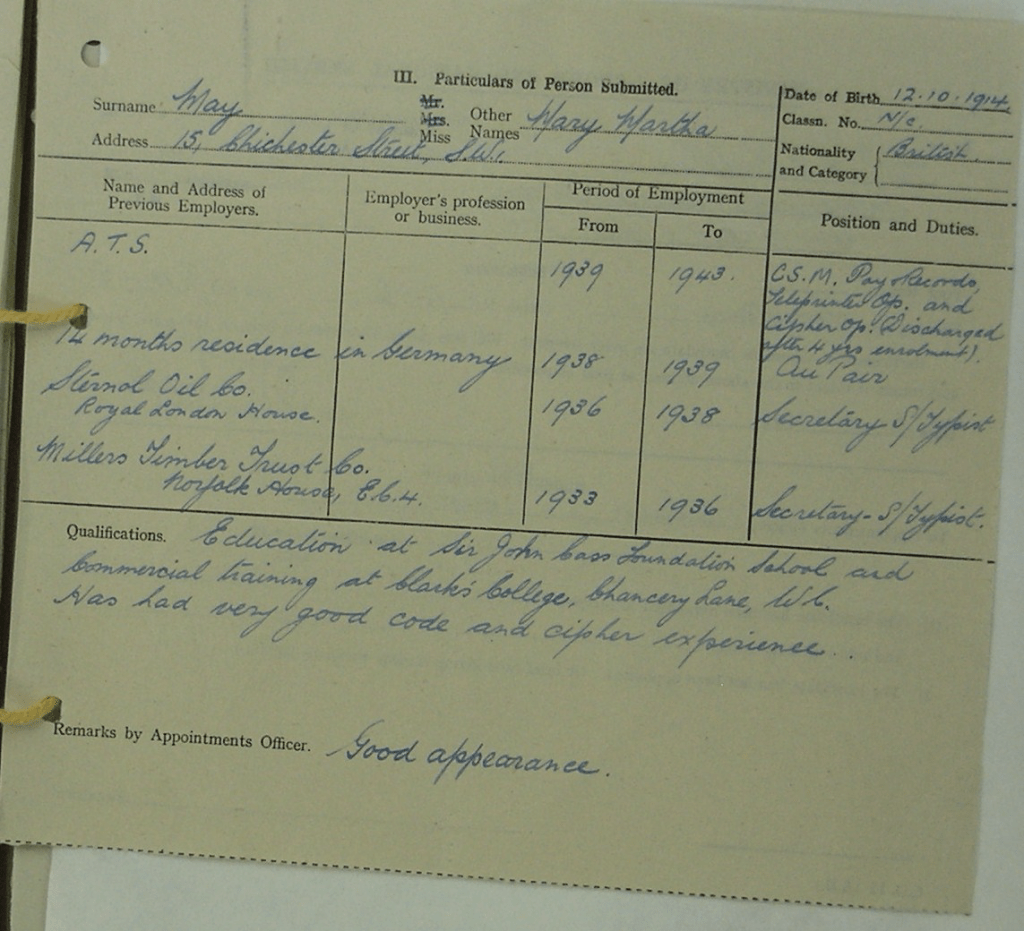 III. Particulars of Person Submitted.
Surname May Mr. Mrs. Miss Other Names Mary Martha
Address 15, Chichester Street, S.W.1
Date of Birth 12.10.1914
Classn. No. N/c.
Nationality and Category British
Name and Address of Previous Employers. Employer's profession or business. Period of Employment From To Position and Duties.
A.T.S. 1939 1943. C.S.M. Pay & Records,
Teleprinter Op. and
Cipher Op. (Discharged
after 4 yrs enrolment).
14 months residence in Germany 1938 1939 Au Pair
Sternol Oil Co. 1936 1938 Secretary S/Typist
Royal London House.
Millers Timber Trust Co.
Norfolk House, E.C.4. 1933 1936 Secretary - S/Typist.
Qualifications. Education at Sir John Cass Foundation School and
Commercial training at Clark's College, Chancery Lane, W.C.
Has had very good code and cipher experience.
Remarks by Appointments Officer. Good appearance.